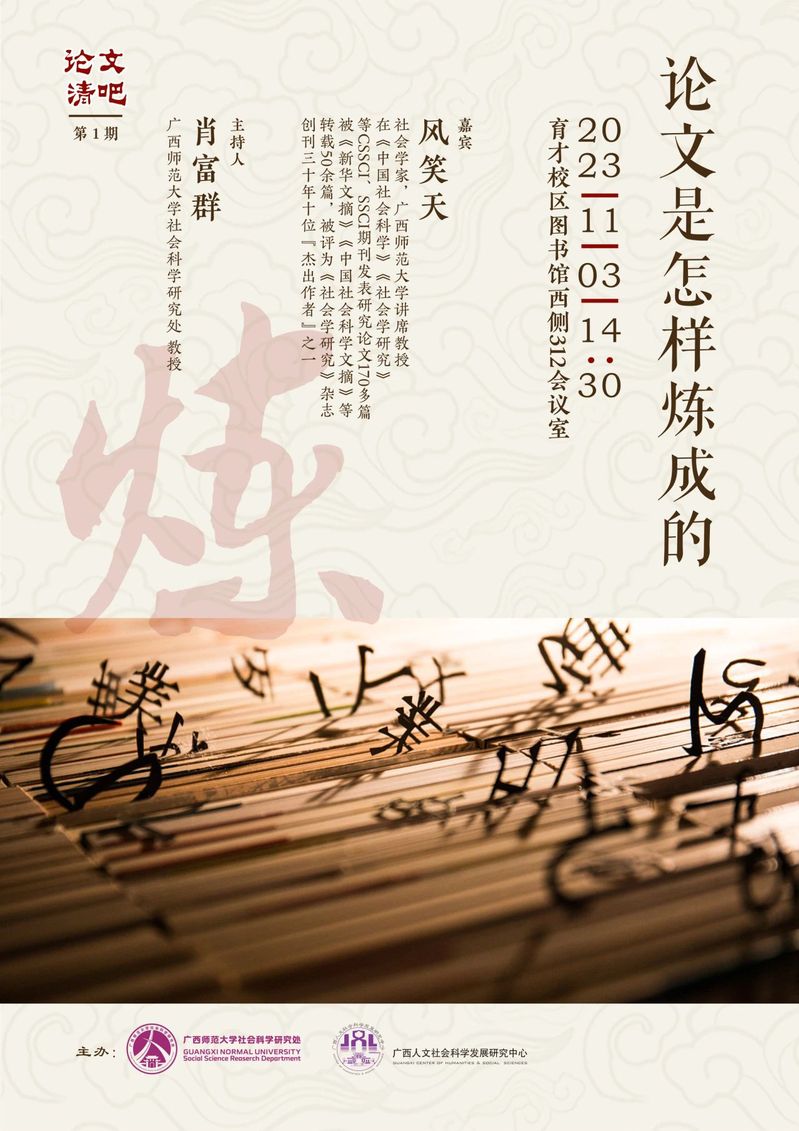 论文是怎样炼成的
2023—11—03—14:30
育才校区图书馆西侧312会议室
嘉宾
风笑天
社会学家，广西师范大学讲席教授
在《中国社会科学》《社会学研究》
等CSSCI、SSCI期刊发表研究论文170多篇
被《新华文摘》《中国社会科学文摘》等
转载50余篇，被评为《社会学研究》杂志
创刊三十年十位『杰出作者』之一
主持人
肖富群
广西师范大学社会科学研究处 教授
论文
清吧
第1期
炼
主办：
广西师范大学社会科学研究处
GUANGXI NORMAL UNIVERSITY
Social Science Reaserch Department
广西人文社会科学发展研究中心
GUANGXI CENTER OF HUMANITIES & SOCIAL SCIENCES